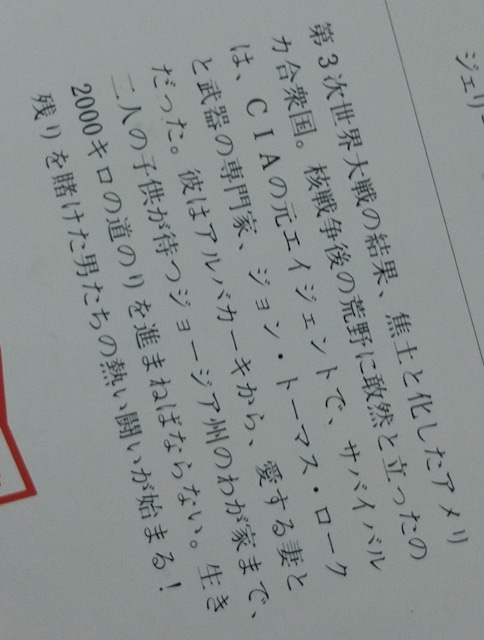 ジェリ
第3次世界大戦の結果、焦土と化したアメリ
カ合衆国。核戦争後の荒野に敢然と立ったの
は、CIAの元エイジェントで、サバイバル
と武器の専門家、ジョン・トーマス・ローク
だった。彼はアルバカーキから、愛する妻と
二人の子供が待つジョージア州のわが家まで、
2000キロの道のりを進まねばならない。生き
残りを賭けた男たちの熱い闘いが始まる!